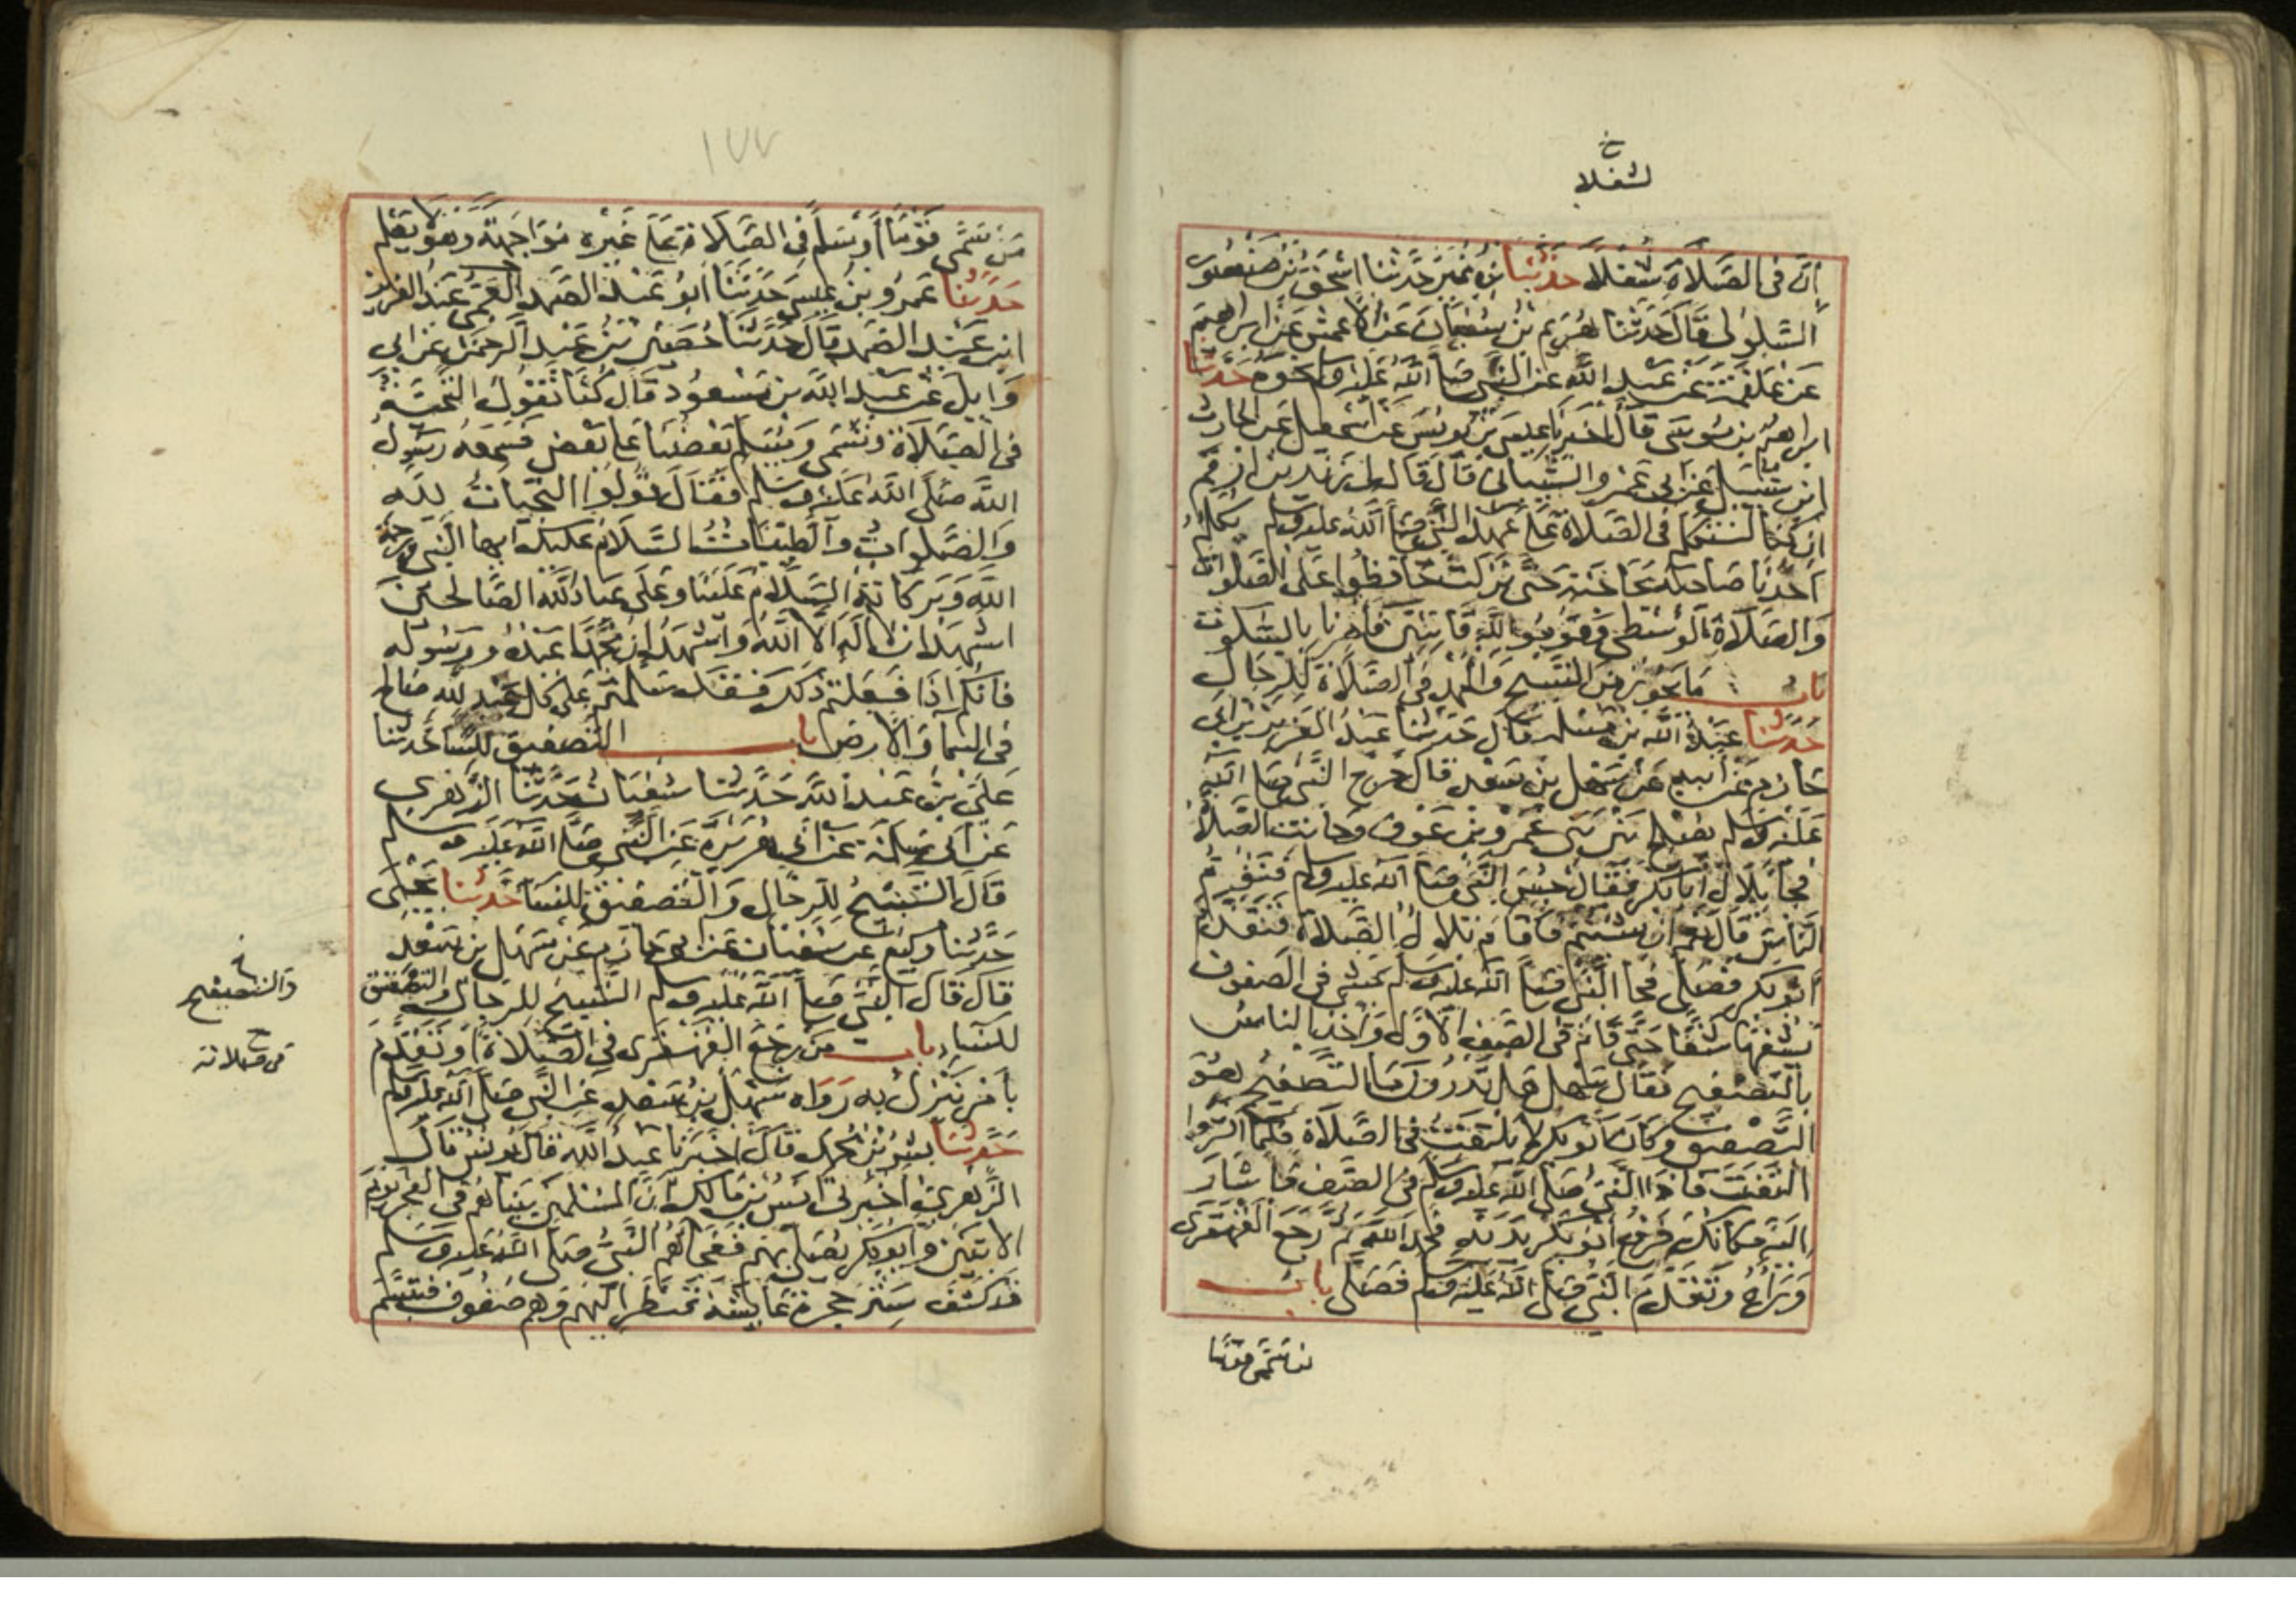 لشغلا
إن في الصلاة شغلا حدثنا ابن نمير حدثنا اسحق بن منصور
السلولي قال حدثنا هريم بن سفيان عن الاعمش عن ابراهيم
عن علقمة عن عبد الله عن النبي صلى الله عليه وسلم نحوه حدثنا
ابراهيم بن موسى قال اخبرنا عيسى بن يونس عن اسمعيل عن الحارث
ابن شبيل عن ابي عمرو الشيباني قال قال لي زيد بن ارقم
ان كنا لنتكلم في الصلاة على عهد النبي صلى الله عليه وسلم يكلم
احدنا صاحبه بحاجته حتى نزلت حافظوا على الصلوات
والصلاة الوسطى وقوموا لله قانتين فامرنا بالسكوت
باب ما يجوز من التسبيح والحمد في الصلاة للرجال
حدثنا عبد الله بن مسلمة قال حدثنا عبد العزيز بن ابي
حازم عن ابيه عن سهل بن سعد قال خرج النبي صلى الله
عليه وسلم يصلح بين بني عمرو بن عوف وحانت الصلاة
فجا بلال ابا بكر فقال حبس النبي صلى الله عليه وسلم فتؤم
الناس قال نعم ان شئتم فاقام بلال الصلاة فتقدم
ابو بكر فصلى فجا النبي صلى الله عليه وسلم يمشي في الصفوف
يشقها شقا حتى قام في الصف الاول واخذ الناس
بالتصفيح فقال سهل هل تدرون ما التصفيح هو
التصفيق وكان ابو بكر لا يلتفت في الصلاة فلما اكثروا
التفت فاذا النبي صلى الله عليه وسلم في الصف فاشار
اليه مكانك فرفع ابو بكر يديه فحمد الله ثم رجع القهقرى
وراءه وتقدم النبي صلى الله عليه وسلم فصلى باب
من سمى قوما
١٧٧
من سمى قوما أو سلم في الصلاة على غيره مواجهة وهو لا يعلم
حدثنا عمرو بن عيسى حدثنا ابو عبد الصمد العمي عبد العزيز
ابن عبد الصمد قال حدثنا حصين بن عبد الرحمن عن ابي
وايل عن عبد الله بن مسعود قال كنا نقول التحية
في الصلاة ونسمي ويسلم بعضنا على بعض فسمعه رسول
الله صلى الله عليه وسلم فقال قولوا التحيات لله
والصلوات والطيبات السلام عليك ايها النبي ورحمة
الله وبركاته السلام علينا وعلى عباد الله الصالحين
اشهد ان لا اله الا الله واشهد ان محمدا عبده ورسوله
فانكم اذا فعلتم ذلك فقد سلمتم على كل عبد لله صالح
في السما والارض باب التصفيق للنسا حدثنا
علي بن عبد الله حدثنا سفيان حدثنا الزهري
عن ابي سلمة عن ابي هريرة عن النبي صلى الله عليه وسلم
قال التسبيح للرجال والتصفيق للنسا حدثنا يحيى
حدثنا وكيع عن سفيان عن ابي حازم عن سهل بن سعد
قال قال النبي صلى الله عليه وسلم التسبيح للرجال والتصفيق
للنساء باب من رجع القهقرى في الصلاة او تقدم
بامر ينزل به رواه سهل بن سعد عن النبي صلى الله عليه وسلم
حدثنا بشر بن محمد قال اخبرنا عبد الله قال يونس قال
الزهري اخبرني انس بن مالك ان المسلمين بينا هم في الفجر يوم
الاثنين وابو بكر يصلي بهم ففجاهم النبي صلى الله عليه وسلم
قد كشف ستر حجرة عايشة فنظر اليهم وهم صفوف فتبسم
والتصفيح
في صلاته